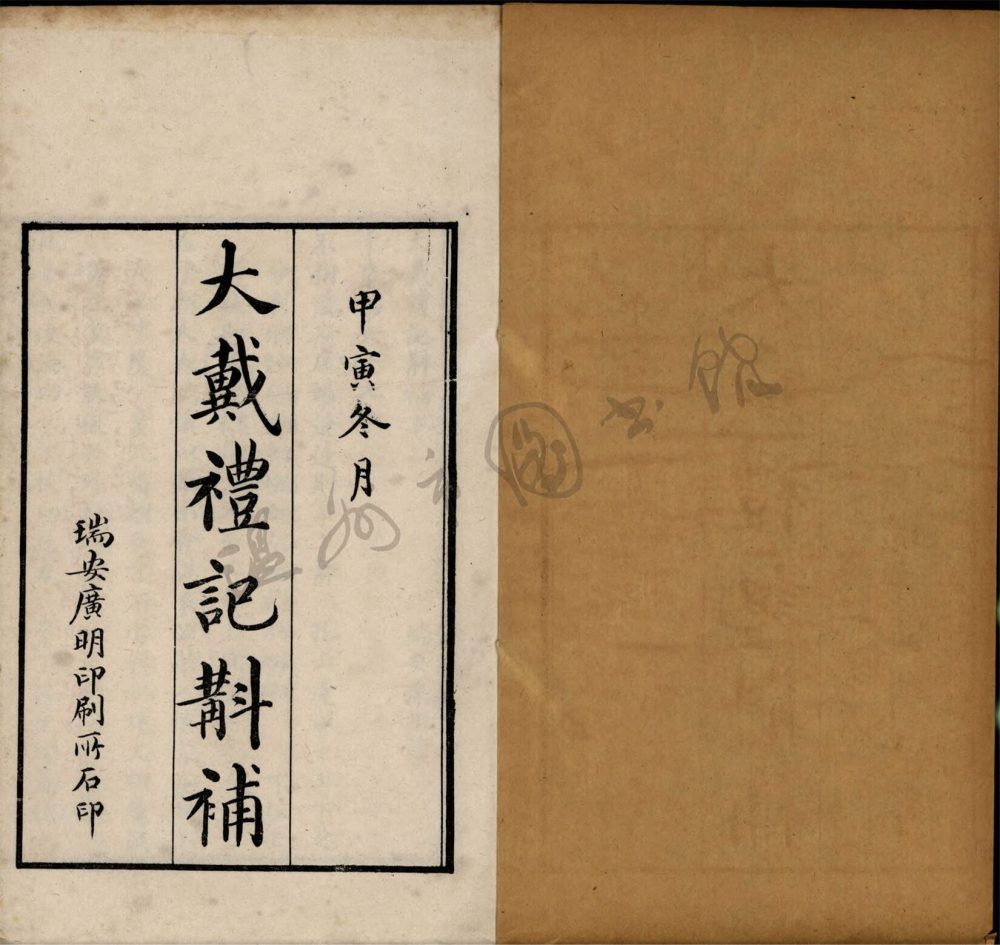 甲寅冬月
大戴禮記斠補
瑞安廣明印刷所石印
溫州市圖書館